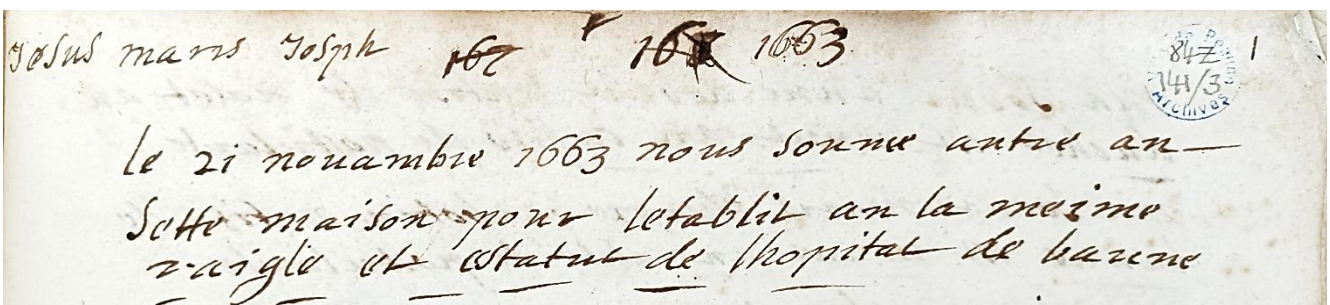 Jesus maris Joseph 167 166 1663
84Z 1
141/3
Archives
le 21 nouambre 1663 nous sonme antre an
Sette maison pour letablit an la meime
raigle et estatut de lhopital de baune